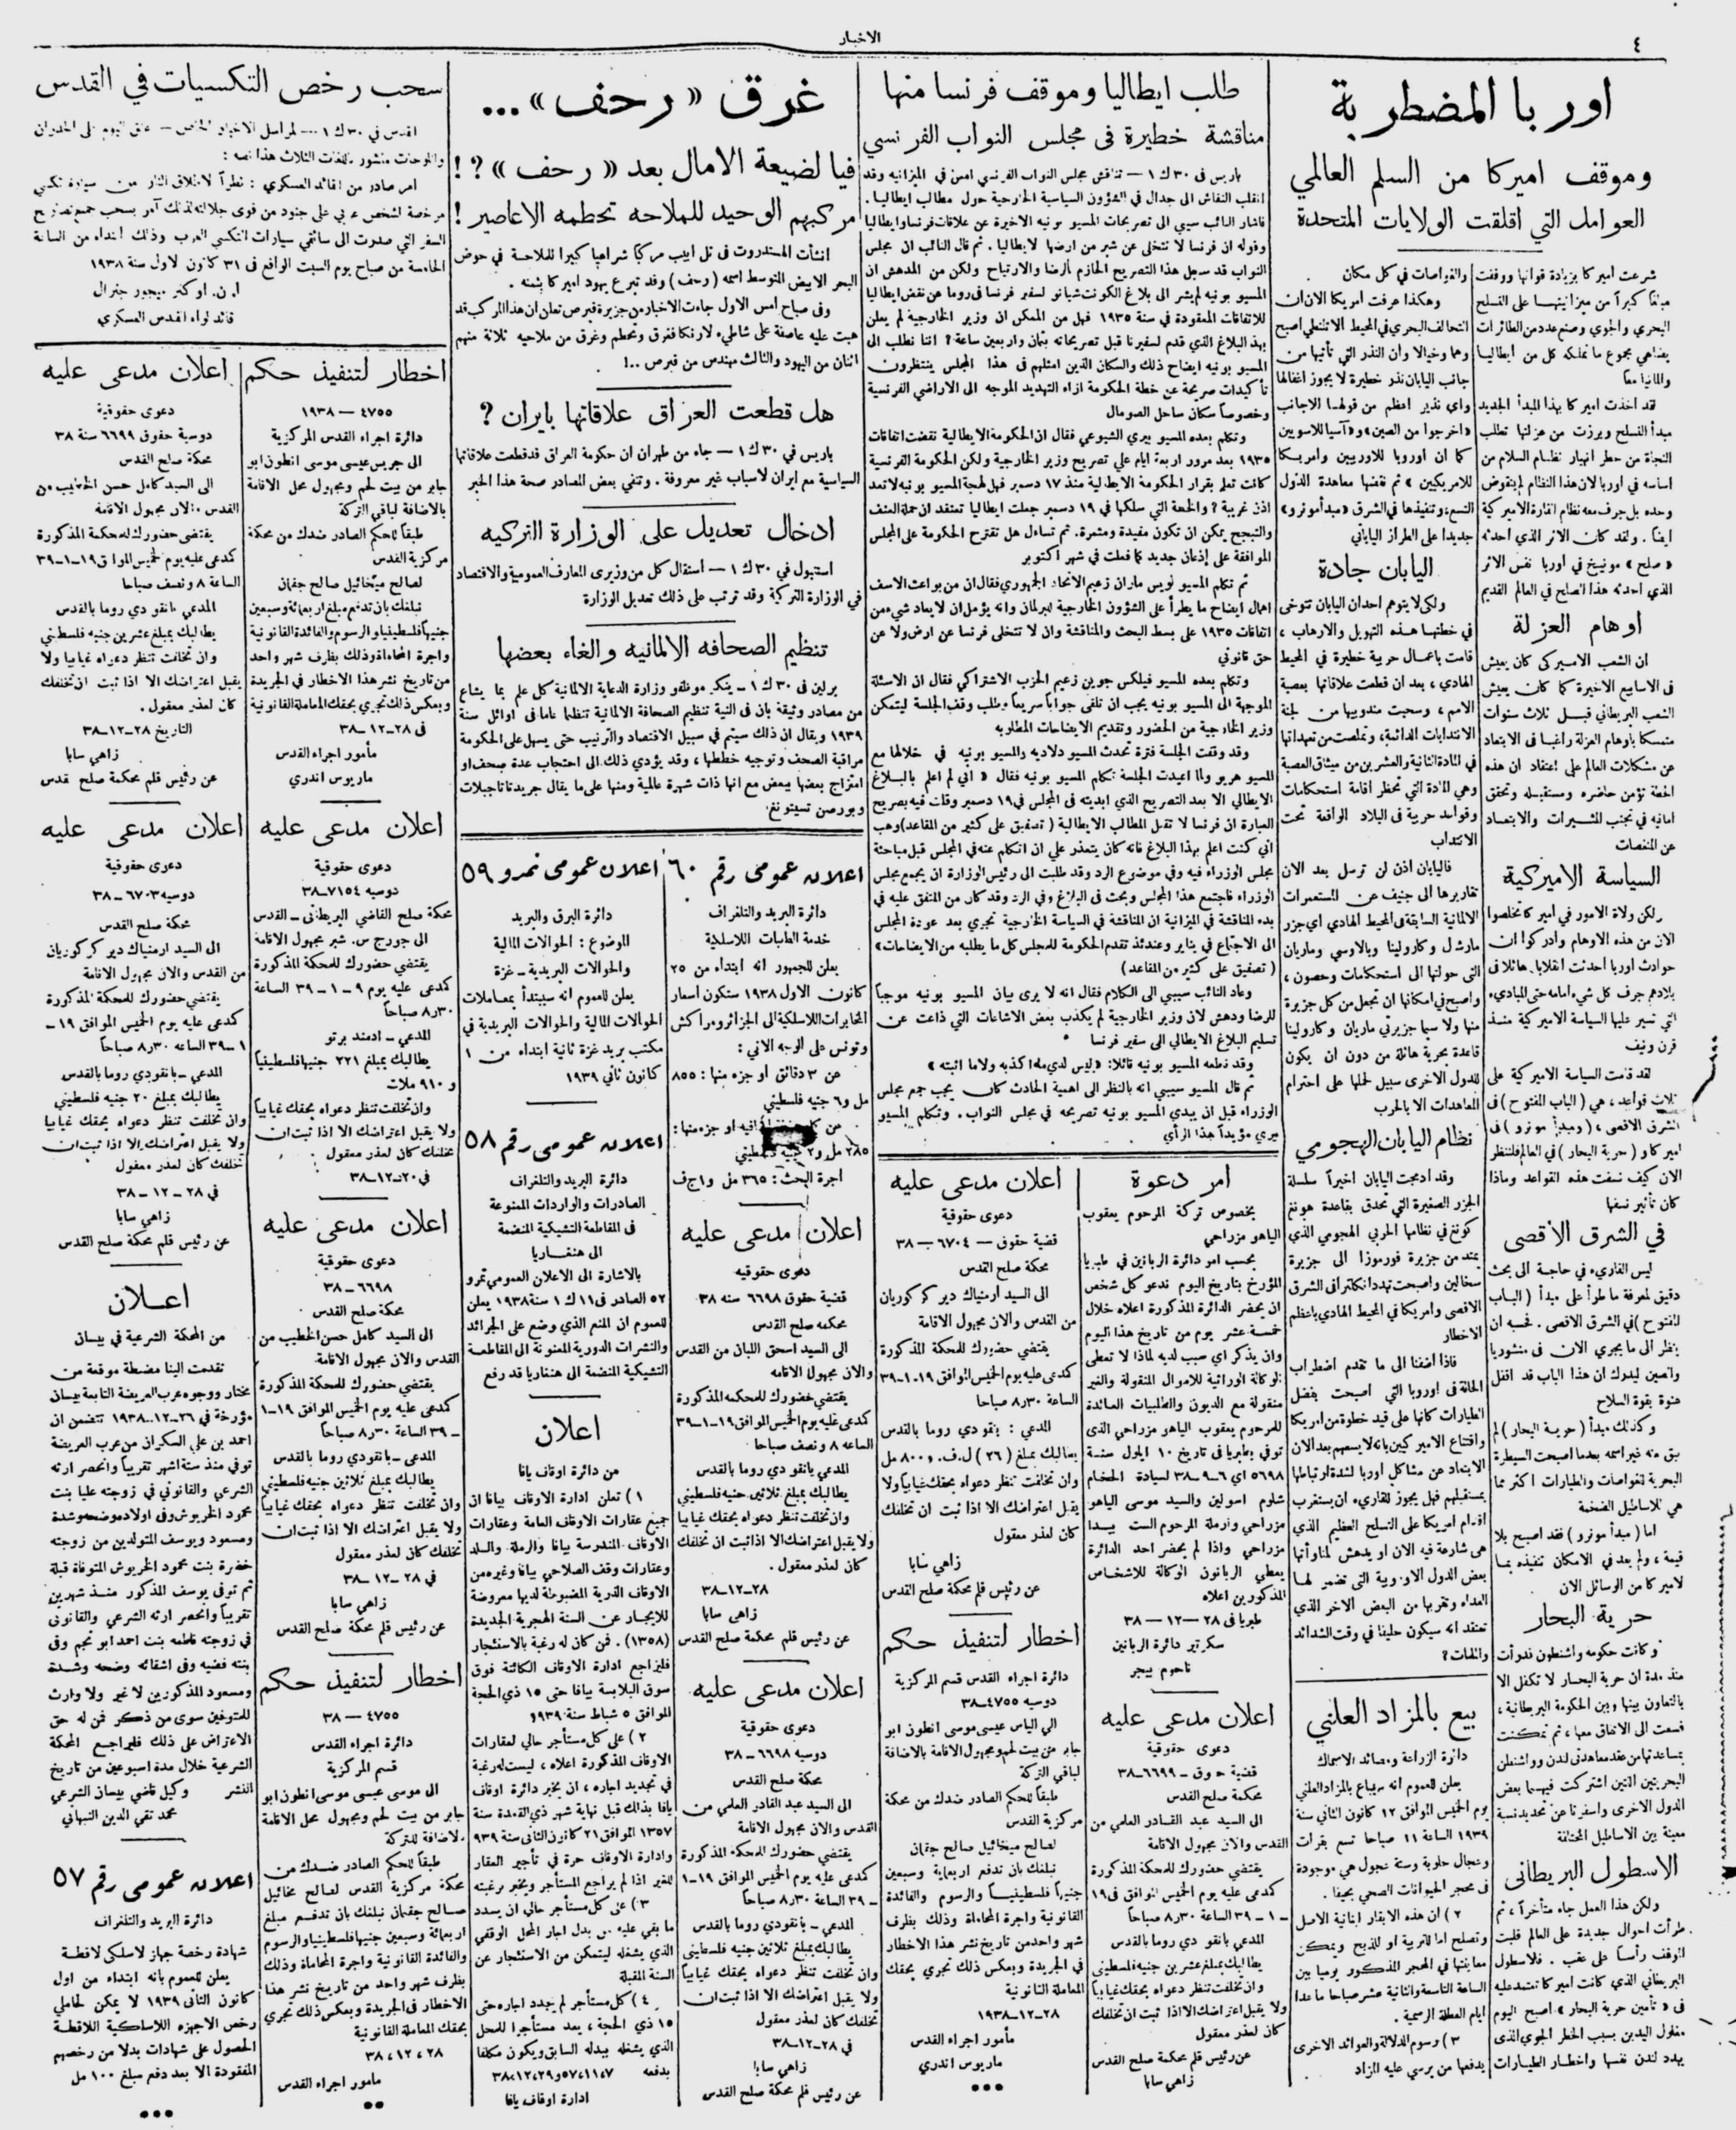 ٤
الاخبار
اوربا المضطربة
وموقف اميركا من السلم العالمي
العوامل التي اقلقت الولايات المتحدة
شرعت اميركا بزيادة قواتها ووقفت
مبلغا كبيراً من ميزانيتها على التسلح
البحري والجوي وصنع عدد من الطائرات
يضاهي مجموع ما تملكه كل من ايطاليا
والمانيا معا
لقد اخذت اميركا بهذا المبدأ الجديد
مبدأ التسلح وبرزت من عزلتها تطلب
النجاة من خطر انهيار نظام السلام من
اساسه في اوربا لان هذا النظام لم يتقوض
وحده بل جرف معه نظام القارة الاميركية
ايضاً . ولقد كان الاثر الذي احدثه
« صلح » مونيخ في أوربا نفس الاثر
الذي احدثه هذا الصلح في العالم القديم
أوهام العزلة
ان الشعب الاميركي كان يعيش
فى الاسابيع الاخيرة كما كان يعيش
الشعب البريطاني قبل ثلاث سنوات
متمسكا بأوهام العزلة راغبا في الابتعاد
عن مشكلات العالم على اعتقاد ان هذه
الخطة تؤمن حاضره ومستقبله وتحقق
امانيه في تجنب المشيرات والابتعاد
عن المنغصات
السياسة الاميركية
ولكن ولاة الامور في اميركا تخلصوا
الان من هذه الاوهام وادركوا ان
حوادث اوربا احدثت انقلابا هائلا فى
بلادهم جرف كل شيء امامه حتى المبادىء
التي تسير عليها السياسة الاميركية منذ
قرن ونيف
لقد قامت السياسة الاميركية على
ثلاث قواعد ، هي ( الباب المفتوح ) في
الشرق الاقصى ، ( ومبدأ مونرو ) في
اميركا و ( حرية البحار ) في العالم فلننظر
الان كيف نسفت هذه القواعد وماذا
كان تأثير نسفها
في الشرق الأقصى
ليس القارىء في حاجة الى بحث
دقيق لمعرفة ما طرأ على مبدأ ( الباب
المفتوح ) في الشرق الاقصى . فحسبه ان
ينظر الى ما يجري الان فى منشوريا
والصين ليدرك ان هذا الباب قد اقفل
عنوة بقوة السلاح
وكذلك مبدأ ( حرية البحار ) لم
يبق منه غير اسمه بعدما اصبحت السيطرة
البحرية للغواصات والطيارات اكثر مما
هي للاساطيل الضخمة
اما ( مبدأ مونرو ) فقد اصبح بلا
قيمة ، ولم يعد في الامكان تنفيذه بما
لاميركا من الوسائل الان
حرية البحار
وكانت حكومة واشنطون قد رأت
منذ مدة ان حرية البحار لا تكفل الا
بالتعاون بينها وبين الحكومة البريطانية ،
فسعت الى الاتفاق معها ، ثم تمكنت
بمساعدتها من عقد معاهدتي لندن وواشنطن
البحريتين اللتين اشتركت فيهما بعض
الدول الاخرى واسفرتا عن تحديد نسبة
معينة بين الاساطيل المختلفة
الاسطول البريطانى
ولكن هذا العمل جاء متأخراً ، ثم
طرأت احوال جديدة على العالم قلبت
الموقف رأساً على عقب . فلاسطول
البريطاني الذي كانت اميركا تعتمد عليه
فى « تأمين حرية البحار » اصبح اليوم
مغلول اليدين بسبب الخطر الجوي الذي
يهدد لندن نفسها واخطار الطيارات
والغواصات في كل مكان .
وهكذا عرفت امريكا الان ان
التحالف البحري في المحيط الاتلنطي اصبح
وهما وخيالا وان النذر التي تأتيها من
جانب اليابان نذر خطيرة لا يجوز اغفالها
واي نذير اعظم من قولها الاجانب
«اخرجوا من الصين» و«آسيا للاسويين
كما ان اوروبا للاوربيين وامريكا
للامريكيين » ثم نقضها معاهدة الدول
التسع، وتنفيذها في الشرق «مبدأ مونرو»
جديدا على الطراز الياباني
اليابان جادة
ولكى لا يتوهم احد ان اليابان تتوخى
في خطتها هذه التهويل والارهاب ،
قامت باعمال حربية خطيرة في المحيط
الهادي ، بعد ان قطعت علاقاتها بعصبة
الامم ، وسحبت مندوبيها من لجنة
الانتدابات الدائمة، وتملصت من تعهداتها
في المادة الثانية والعشرين من ميثاق العصبة
وهي المادة التي تحظر اقامة استحكامات
وقواعد حربية فى البلاد الواقعة تحت
الانتداب
فاليابان اذن لن ترسل بعد الان
تقاريرها الى جنيف عن المستعمرات
الالمانية السابقة فى المحيط الهادي اي جزر
مارشل وكارولينا وبالاوسي وماريان
التى حولتها الى استحكامات وحصون ،
واصبح في امكانها ان تجعل من كل جزيرة
منها ولا سيما جزيرتي ماريان وكارولينا
قاعدة بحرية هائلة من دون ان يكون
للدول الاخرى سبيل لحملها على احترام
المعاهدات الا بالحرب
نظام اليابان الهجومي
وقد ادمجت اليابان اخيراً سلسلة
الجزر الصغيرة التي تحدق بقاعدة هونغ
كونغ في نظامها الحربي الهجومي الذي
يمتد من جزيرة فورموزا الى جزيرة
سخالين واصبحت تهدد انكلترا في الشرق
الاقصى وامريكا في المحيط الهادي باعظم
الاخطار
فاذا اضفنا الى ما تقدم اضطراب
الحالة فى اوروبا التي اصبحت بفضل
الطيارات كأنها على قيد خطوة من امريكا
واقتناع الاميركيين بانه لا يسعهم بعد الان
الابتعاد عن مشاكل أوربا لشدة ارتباطها
بمستقبلهم فهل يجوز للقارىء ان يستغرب
اقدام امريكا على التسلح العظيم الذي
هى شارعة فيه الان او يدهش لمناوأتها
بعض الدول الاوروبية التى تضمر لها
العداء وتقربها من البعض الاخر الذي
تعتقد انه سيكون حليفا في وقت الشدائد
والملمات ؟
بيع بالمزاد العلني
دائرة الزراعة ومصائد الاسماك
يعلن للعموم انه سيباع بالمزاد العلني
يوم الخميس الموافق ١٢ كانون الثاني سنة
١٩٣٩ الساعة ١١ صباحا تسع بقرات
وعجال حلوبة وستة عجول هي موجودة
فى محجر الحيوانات الصحي بحيفا .
٢ ) ان هذه الابقار لبنانية الاصل
وتصلح اما للتربية او للذبح ويمكن
معاينتها في المحجر المذكور يوميا بين
الساعة التاسعة والثانية عشر صباحا ما عدا
ايام العطلة الرسمية .
٣ ) رسوم الدلالة والعوائد الاخرى
يدفعها من يرسي عليه المزاد
طلب ايطاليا وموقف فرنسا منها
مناقشة خطيرة فى مجلس النواب الفرنسي
باريس فى ٣٠ ك ١ — تناقش مجلس النواب الفرنسي امس في الميزانية وقد
انقلب النقاش الى جدال في الشؤون السياسية الخارجية حول مطالب ايطاليا .
فاشار النائب سيبي الى تصريحات المسيو بونيه الاخيرة عن علاقات فرنسا وايطاليا
وقوله ان فرنسا لا تتخلى عن شبر من ارضها لايطاليا . ثم قال النائب ان مجلس
النواب قد سجل هذا التصريح الحازم بالرضا والارتياح ولكن من المدهش ان
المسيو بونيه لم يشر الى بلاغ الكونت شيانو لسفير فرنسا فى روما عن نقض ايطاليا
للاتفاقات المعقودة في سنة ١٩٣٥ فهل من الممكن ان وزير الخارجية لم يعلن
بهذا البلاغ الذي قدم لسفيرنا قبل تصريحاته بثمان واربعين ساعة ؟ اننا نطلب الى
المسيو بونيه ايضاح ذلك والسكان الذين امثلهم فى هذا المجلس ينتظرون
تأكيدات صريحة عن خطة الحكومة ازاء التهديد الموجه الى الاراضي الفرنسية
وخصوصاً سكان ساحل الصومال
وتكلم بعده المسيو بيري الشيوعي فقال ان الحكومة الايطالية نقضت اتفاقات
١٩٣٥ بعد مرور اربعة ايام على تصريح وزير الخارجية ولكن الحكومة الفرنسية
كانت تعلم بقرار الحكومة الايطالية منذ ١٧ دسمبر فهل لهجة المسيو بونيه لا تعد
اذن غريبة ؟ والخطة التي سلكها في ١٩ دسمبر جعلت ايطاليا تعتقد ان حملة العنف
والتبجح يمكن ان تكون مفيدة ومثمرة. ثم تساءل هل تقترح الحكومة على المجلس
الموافقة على إذعان جديد كما فعلت في شهر أكتوبر
ثم تكلم المسيو لويس ماران زعيم الاتحاد الجمهوري فقال ان من بواعث الاسف
اهمال ايضاح ما يطرأ على الشؤون الخارجية للبرلمان وانه يؤمل ان لا يعاد شيء من
اتفاقات ١٩٣٥ على بسط البحث والمناقشة وان لا تتخلى فرنسا عن ارض ولا عن
حق قانوني
وتكلم بعده المسيو فيلكس جوين زعيم الحزب الاشتراكي فقال ان الاسئلة
الموجهة الى المسيو بونيه يجب ان تلقى جواباً سريعاً وطلب وقف الجلسة ليتمكن
وزير الخارجية من الحضور وتقديم الايضاحات المطلوبه
وقد وقفت الجلسة فترة تحدث المسيو دلاديه والمسيو بونيه في خلالها مع
المسيو هريو ولما اعيدت الجلسة تكلم المسيو بونيه فقال « اني لم اعلم بالبلاغ
الايطالي الا بعد التصريح الذي ابديته فى المجلس في ١٩ دسمبر وقلت فيه بصريح
العبارة ان فرنسا لا تقبل المطالب الايطالية ( تصفيق على كثير من المقاعد) وهب
اني كنت اعلم بهذا البلاغ فانه كان يتعذر علي ان اتكلم عنه في المجلس قبل مباحثة
مجلس الوزراء فيه وفي موضوع الرد وقد طلبت الى رئيس الوزارة ان يجمع مجلس
الوزراء فاجتمع هذا المجلس وبحث فى البلاغ وفي الرد وقد كان من المتفق عليه في
بدء المناقشة في الميزانية ان المناقشة في السياسة الخارجية تجري بعد عودة المجلس
الى الاجتماع في يناير وعندئذ تقدم الحكومة للمجلس كل ما يطلبه من الايضاحات»
( تصفيق على كثير من المقاعد )
وعاد النائب سيبي الى الكلام فقال انه لا يرى بيان المسيو بونيه موجباً
للرضا ودهش لان وزير الخارجية لم يكذب بعض الاشاعات التي ذاعت عن
تسليم البلاغ الايطالي الى سفير فرنسا .
وقد قطعه المسيو بونيه قائلا: «ليس لدي ما اكذبه ولا ما اثبته »
ثم قال المسيو سيبي انه بالنظر الى اهمية الحادث كان يجب جمع مجلس
الوزراء قبل ان يبدي المسيو بونيه تصريحه في مجلس النواب . وتكلم المسيو
بيري مؤيداً هذا الرأي
امر دعوة
بخصوص تركة المرحوم يعقوب
الياهو مزراحي
بحسب امر دائرة الربانين في طبريا
المؤرخ بتاريخ اليوم ندعو كل شخص
ان يحضر الدائرة المذكورة اعلاه خلال
خمسة عشر يوم من تاريخ هذا اليوم
وان يذكر اي سبب لديه لماذا لا تعطى
الوكالة الوراثية للاموال المنقولة والغير
منقولة مع الديون والطلبيات العائدة
للمرحوم يعقوب الياهو مزراحي الذى
توفي بطبريا فى تاريخ ١٠ ايلول سنة
٥٦٩٨ اي ٦ـ٩ـ٣٨ لسيادة الحخام
شلوم اسولين والسيد موسى الياهو
مزراحي وارملة المرحوم الست يدا
مزراحي واذا لم يحضر احد الدائرة
يعطي الربانون الوكالة للاشخاص
المذكورين اعلاه
طبريا فى ٢٨ — ١٢ — ٣٨
سكرتير دائرة الربانين
ناحوم بيجر
اعلان مدعى عليه
دعوى حقوقية
قضية حوق - ٦٦٩٩ـ٣٨
محكمة صلح القدس
الى السيد عبد القادر العلمي من
القدس والان مجهول الاقامة
يقتضي حضورك للمحكة المذكورة
كمدعى عليه يوم الخميس الموافق فى ١٩
ـ ١ـ ٣٩ الساعة ٨٫٣٠ صباحاً
المدعي بانقو دي روما بالقدس
يطالبك بمبلغ عشرين جنيه فلسطيني
وان تخلفت تنظر دعواه بحقك غيابياً
ولا يقبل اعتراضك الا اذا ثبت ان تخلفك
كان لعذر معقول
عن رئيس قلم محكمة صلح القدس
زاهي سابا
اعلان مدعى عليه
دعوى حقوقية
قضية حقوق — ٦٧٠٤ — ٣٨
محكة صلح القدس
الى السيد أرمنياك دير كركوريان
من القدس والان مجهول الاقامة
يقتضي حضورك للمحكة المذكورة
كمدعى عليه يوم الخميس الموافق ١٩ـ١ـ٣٩
الساعة ٨٫٣٠ صباحا
المدعي : بنقو دي روما بالقدس
يطالبك بمبلغ ( ٢٦ ) ل.ف. و ٨٠٠ مل
وان تخلفت تنظر دعواه بحقك غيابياً ولا
يقبل اعتراضك الا اذا ثبت ان تخلفك
كان لعذر معقول
زاهي سابا
عن رئيس قلم محكة صلح القدس
اخطار لتنفيذ حكم
دائرة اجراء القدس قسم المركزية
دوسيه ٤٧٥٥ـ٣٨
الى الياس عيسى موسى انطون ابو
جابر من بيت لحم ومجهول الاقامة بالاضافة
لباقي التركة
طبقاً للحكم الصادر ضدك من محكة
مركزية القدس
لصالح ميخائيل صالح جقمان
نبلغك بان تدفع اربعماية وسبعين
جنيهاً فلسطينياً والرسوم والفائدة
القانونية واجرة المحاماة وذلك بظرف
شهر واحد من تاريخ نشر هذا الاخطار
في الجريدة وبعكس ذلك تجري بحقك
المعاملة القانونية
٢٨ـ١٢ـ١٩٣٨
مأمور اجراء القدس
ماريوس اندري
غرق «رحف» ...
فيا لضيعة الامال بعد «رحف» ؟ !
مركبهم الوحيد للملاحه تحطمه الاعاصير !
انشأت المستدروت فى تل ابيب مركبا شراعيا كبيرا للملاحة في حوض
البحر الابيض المتوسط اسمه ( رحف ) وقد تبرع يهود اميركا بثمنه .
وفى صباح أمس الاول جاءت الاخبار من جزيرة قبرص تعلن ان هذا المركب قد
هبت عليه عاصفة على شاطىء لارنكا فغرق وتحطم وغرق من ملاحيه ثلاثة منهم
اثنان من اليهود والثالث مهندس من قبرص ..!
هل قطعت العراق علاقاتها بايران ؟
باريس في ٣٠ ك ١ — جاء من طهران ان حكومة العراق قد قطعت علاقاتها
السياسية مع ايران لاسباب غير معروفة . وتنفي بعض المصادر صحة هذا الخبر
ادخال تعديل على الوزارة التركيه
استنبول في ٣٠ ك ١ — أستقال كل من وزيرى المعارف العمومية والاقتصاد
في الوزارة التركية وقد ترتب على ذلك تعديل الوزارة
تنظيم الصحافه الالمانيه والغاء بعضها
برلين فى ٣٠ ك ١ ـ ينكر موظفو وزارة الدعاية الالمانية كل علم بما يشاع
من مصادر وثيقة بان فى النية تنظيم الصحافة الالمانية تنظيما عاما فى اوائل سنة
١٩٣٩ ويقال ان ذلك سيتم في سبيل الاقتصاد والترتيب حتى يسهل على الحكومة
مراقبة الصحف وتوجيه خططها ، وقد يؤدي ذلك الى احتجاب عدة صحف او
امتزاج بعضها ببعض مع انها ذات شهرة عالمية ومنها على ما يقال جريدتا تاجبلات
وبورصن تسيتونغ
اعلان عمومى رقم ٦٠
دائرة البريد والتلغراف
خدمة الطلبات اللاسلكية
يعلن للجمهور انه ابتداء من ٢٥
كانون الاول ١٩٣٨ ستكون أسعار
المخابرات اللاسلكية الى الجزائر ومراكش
وتونس على الوجه الاتي :
عن ٣ دقائق أو جزء منها : ٨٥٥
مل و٦ جنيه فلسطيني
عن كل دقيقة اضافيه او جزء منها :
٢٨٥ مل و٢ جنيه فلسطيني
اجرة البحث : ٣٦٥ مل و١ج ف
اعلان مدعى عليه
دعوى حقوقيه
قضية حقوق ٦٦٩٨ سنه ٣٨
محكمه صلح القدس
الى السيد اسحق اللبان من القدس
والان مجهول الاقامه
يقتضي حضورك للمحكمه المذكورة
كمدعى عليه يوم الخميس الموافق ١٩ـ١ـ٣٩
الساعه ٨ ونصف صباحا
المدعي بانقو دي روما بالقدس
يطالبك بمبلغ ثلاثين جنيه فلسطيني
وان تخلفت تنظر دعواه بحقك غيابيا
ولا يقبل اعتراضك الا اذا ثبت ان تخلفك
كان لعذر معقول .
٢٨ـ١٢ـ٣٨
زاهى سابا
عن رئيس قلم محكمة صلح القدس
اعلان مدعى عليه
دعوى حقوقية
دوسيه ٦٦٩٨ ـ ٣٨
محكة صلح القدس
الى السيد عبد القادر العلمي من
القدس والان مجهول الاقامة
يقتضي حضورك للمحكة المذكورة
كمدعى عليه يوم الخميس الموافق ١٩ـ١
ـ ٣٩ الساعة ٨٫٣٠ صباحاً
المدعي ـ بانقودي روما بالقدس
يطالبك بمبلغ ثلاثين جنيه فلسطينى
وان تخلفت تنظر دعواه بحقك غيابياً
ولا يقبل اعتراضك الا اذا ثبت ان
تخلفك كان لعذر معقول
في ٢٨ـ١٢ـ٣٨
زاهي سابا
عن رئيس قلم محكة صلح القدس
اعلان عمومى نمرو ٥٩
دائرة البرق والبريد
الموضوع : الحوالات المالية
والحوالات البريدية ـ غزة
يعلن للعموم انه سيبتدأ بمعاملات
الحوالات المالية والحوالات البريدية في
مكتب بريد غزة ثانية ابتداء من ١
كانون ثاني ١٩٣٩
اعلان عمومى رقم ٥٨
دائرة البريد والتلغراف
الصادرات والواردات الممنوعة
فى المقاطعة التشيكية المنضمة
الى هنغاريا
بالاشارة الى الاعلان العمومي نمرو
٥٢ الصادر فى ١١ ك ١ سنة ١٩٣٨ يعلن
للعموم ان المنع الذي وضع على الجرائد
والنشرات الدورية المعنونة الى المقاطعة
التشيكية المنضمة الى هنغاريا قد رفع
اعلان
من دائرة اوقاف يافا
١ ) تعلن ادارة الاوقاف بيافا ان
جميع عقارات الاوقاف العامة وعقارات
الاوقاف المندرسة بيافا والرملة واللد
وعقارات وقف الصلاحي بيافا وغيره من
الاوقاف الذرية المضبوطة لديها معروضة
للايجار عن السنة الهجرية الجديدة
(١٣٥٨) . فمن كان له رغبة بالاستئجار
فليراجع ادارة الاوقاف الكائنة فوق
سوق البلابسة بيافا حتى ١٥ ذي الحجة
الموافق ٥ شباط سنة ١٩٣٩
٢ ) على كل مستأجر حالي لعقارات
الاوقاف المذكورة اعلاه ، ليست له رغبة
في تجديد اجاره ، ان يخبر دائرة اوقاف
يافا بذلك قبل نهاية شهر ذي القعدة سنة
١٣٥٧ الموافق ٢١ كانون الثانى سنة ٩٣٩
وادارة الاوقاف حرة في تأجير العقار
للغير اذا لم يراجع المستأجر ويخبر برغبته
٣ ) على كل مستأجر حالي ان يسدد
ما بقي عليه من بدل اجار المحل الوقفي
الذي يشغله ليتمكن من الاستئجار عن
السنة المقبلة
٤ ) كل مستأجر لم يجدد اجاره حتى
١٥ ذي الحجة ، يعد مستأجرا للمحل
الذي يشغله ببدله السابق ويكون مكلفا
بدفعه
ادارة اوقاف يافا
سحب رخص التكسيات في القدس
القدس في ٣٠ ك ١ — لمراسل الاخبار الخاص — علق اليوم على الجدران
واللوحات منشور باللغات الثلاث هذا نصه :
امر صادر من القائد العسكري : نظراً لاطلاق النار من سيارة تكسي
مرخصة لشخص عربي على جنود من قوى جلالته لذلك آمر بسحب جميع تصاريح
السفر التي صدرت الى سائقي سيارات التكسي العرب وذلك ابتداء من الساعة
الخامسة من صباح يوم السبت الواقع فى ٣١ كانون لاول سنة ١٩٣٨
ا. ن. اوكنر ميجور جنرال
قائد لواء القدس العسكري
اخطار لتنفيذ حكم
٤٧٥٥ — ١٩٣٨
دائرة اجراء القدس المركزية
الى جريس عيسى موسى انطون ابو
جابر من بيت لحم ومجهول محل الاقامة
بالاضافة لباقي التركة
طبقاً للحكم الصادر ضدك من محكة
مركزية القدس
لصالح ميخائيل صالح جقمان
نبلغك بان تدفع مبلغ اربعمائة وسبعين
جنيهاً فلسطينيا والرسوم والفائدة القانونية
واجرة المحاماة وذلك بظرف شهر واحد
من تاريخ نشر هذا الاخطار في الجريدة
وبعكس ذلك تجري بحقك المعاملة القانونية
فى ٢٨ـ١٢ـ٣٨
مأمور اجراء القدس
ماريوس اندري
اعلان مدعى عليه
دعوى حقوقية
دوسيه ٧١٥٤ـ٣٨
محكة صلح القاضي البريطانى ـ القدس
الى جورج س. شبر مجهول الاقامة
يقتضي حضورك للمحكة المذكورة
كمدعى عليه يوم ٩ ـ ١ ـ ٣٩ الساعة
٨٫٣٠ صباحاً
المدعي ـ ادمند برتو
يطالبك بمبلغ ٢٢١ جنيها فلسطينياً
و ٩١٠ ملات
وان تخلفت تنظر دعواه بحقك غيابياً
ولا يقبل اعتراضك الا اذا ثبت ان
تخلفك كان لعذر معقول .
في ٢٠ـ١٢ـ٣٨
اعلان مدعى عليه
دعوى حقوقية
٦٦٩٨ـ٣٨
محكة صلح القدس
الى السيد كامل حسن الخطيب من
القدس والان مجهول الاقامة
يقتضي حضورك للمحكة المذكورة
كمدعى عليه يوم الخميس الموافق ١٩ـ١
ـ ٣٩ الساعة ٨٫٣٠ صباحاً
المدعي ـ بانقودي روما بالقدس
يطالبك بمبلغ ثلاثين جنيه فلسطيني
وان تخلفت تنظر دعواه بحقك غيابياً
ولا يقبل اعتراضك الا اذا ثبت ان
تخلفك كان لعذر معقول
في ٢٨ ـ١٢ ـ٣٨
زاهي سابا
عن رئيس قلم محكة صلح القدس
اخطار لتنفيذ حكم
٤٧٥٥ — ٣٨
دائرة اجراء القدس
قسم المركزية
الى موسى عيسى موسى انطون ابو
جابر من بيت لحم ومجهول محل الاقامة
بالاضافة للتركة
طبقاً للحكم الصادر ضدك من
محكة مركزية القدس لصالح مخائيل
صالح جقمان نبلغك بان تدفع مبلغ
اربعمائة وسبعين جنيها فلسطينيا والرسوم
والفائدة القانونية واجرة المحاماة وذلك
بظرف شهر واحد من تاريخ نشر هذا
الاخطار فى الجريدة وبعكس ذلك تجري
بحقك المعاملة القانونية
٢٨ ، ١٢ ، ٣٨
مأمور اجراء القدس
اعلان مدعى عليه
دعوى حقوقية
دوسية حقوق ٦٦٩٩ سنة ٣٨
محكة صلح القدس
الى السيد كامل حسن الخطيب من
القدس والان مجهول الاقامة
يقتضي حضورك للمحكمة المذكورة
كمدعى عليه يوم الخميس الموافق ١٩ـ١ـ٣٩
الساعة ٨ ونصف صباحا
المدعي بانقو دي روما بالقدس
يطالبك بمبلغ عشرين جنيه فلسطيني
وان تخلفت تنظر دعواه غيابيا ولا
يقبل اعتراضك الا اذا ثبت ان تخلفك
كان لعذر معقول .
التاريخ ٢٨ـ١٢ـ٣٨
زاهي سابا
عن رئيس قلم محكمة صلح قدس
اعلان مدعى عليه
دعوى حقوقية
دوسيه ٦٧٠٣ ـ ٣٨
محكة صلح القدس
الى السيد ارمنياك دير كركوريان
من القدس والان مجهول الاقامة
يقتضي حضورك للمحكة المذكورة
كمدعى عليه يوم الخميس الموافق ١٩ ـ
١ ـ٣٩ الساعه ٨٫٣٠ صباحاً
المدعي ـ بانقودي روما بالقدس
يطالبك بمبلغ ٢٠ جنيه فلسطيني
وان تخلفت تنظر دعواه بحقك غيابيا
ولا يقبل اعتراضك إلا اذا ثبت ان
تخلفك كان لعذر معقول
في ٢٨ ـ ١٢ ـ ٣٨
زاهي سابا
عن رئيس قلم محكة صلح القدس
اعلان
من المحكة الشرعية في بيسان
تقدمت الينا مضبطة موقعة من
مختار ووجوه عرب العريضة التابعة بيسان
مؤرخة في ٢٦ـ١٢ـ١٩٣٨ تتضمن ان
احمد بن علي السكران من عرب العريضة
توفي منذ ستة اشهر تقريباً وانحصر ارثه
الشرعي والقانوني في زوجته عليا بنت
محمود الخربوش وفى اولاده وضحه وشدة
ومسعود ويوسف المتولدين من زوجته
خضرة بنت محمود الخربوش المتوفاة قبلة
ثم توفى يوسف المذكور منذ شهرين
تقريباً وانحصر ارثه الشرعي والقانونى
في زوجته فاطمه بنت احمد ابو نجم وفى
بنته فضيه وفى اشقائه وضحه وشدة
ومسعود المذكورين لا غير ولا وارث
للمتوفين سوى من ذكر فمن له حق
الاعتراض على ذلك فليراجع المحكة
الشرعية خلال مدة اسبوعين من تاريخ
النشر وكيل قاضي بيسان الشرعي
محمد تقي الدين النبهاني
اعلان عمومى رقم ٥٧
دائرة البريد والتلغراف
شهادة رخصة جهاز لاسلكى لاقطة
يعلن للعموم بأنه ابتداء من اول
كانون الثانى ١٩٣٩ لا يمكن لحاملي
رخص الاجهزه اللاسلكية اللاقطة
الحصول على شهادات بدلا من رخصهم
المفقودة الا بعد دفع مبلغ ١٠٠ مل